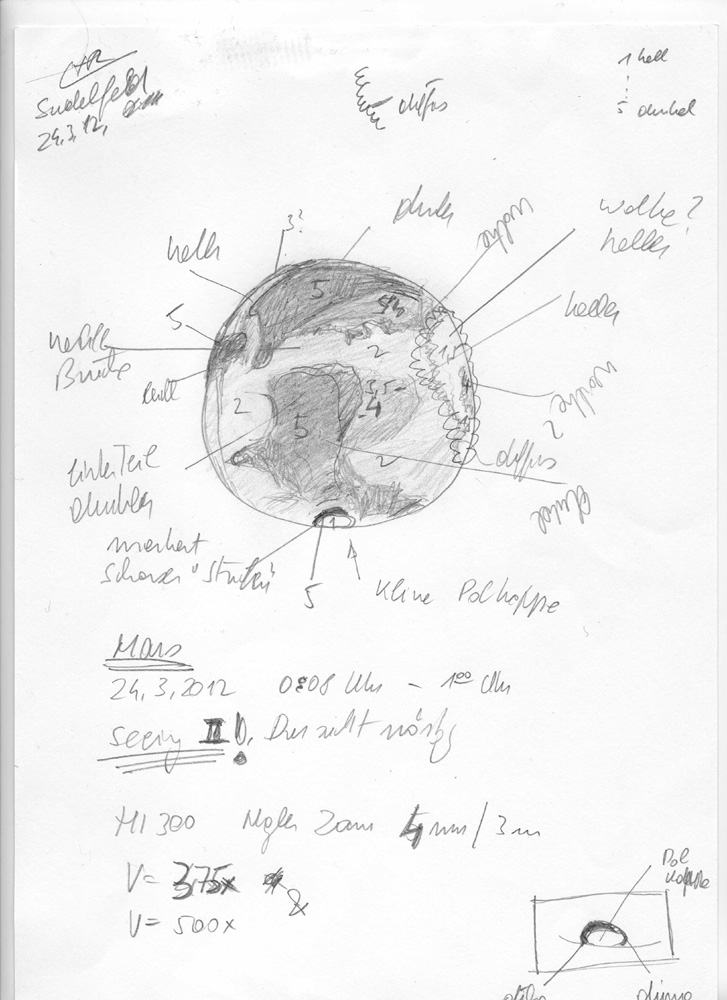 CHR
Sudelfeld
24.3.12,
diffus
1 hell
5 dunkel
3?
dunkel
Wolke
Wolke?
heller
hell
heller
5
5
4
helle
Brücke
hell
2
1
2
3,5-
-4
4
5
Wolke?
2
linker Teil
dunkler
diffus
dunkel
markant
1
5
kleine Polkappe
Mars
24.3.2012 0:08 Uhr - 1 00 Uhr
seeing II!, Durchsicht mäßig
Nagler Zoom 4mm/3mm
V= 375x &
V= 500x
Pol
kappe